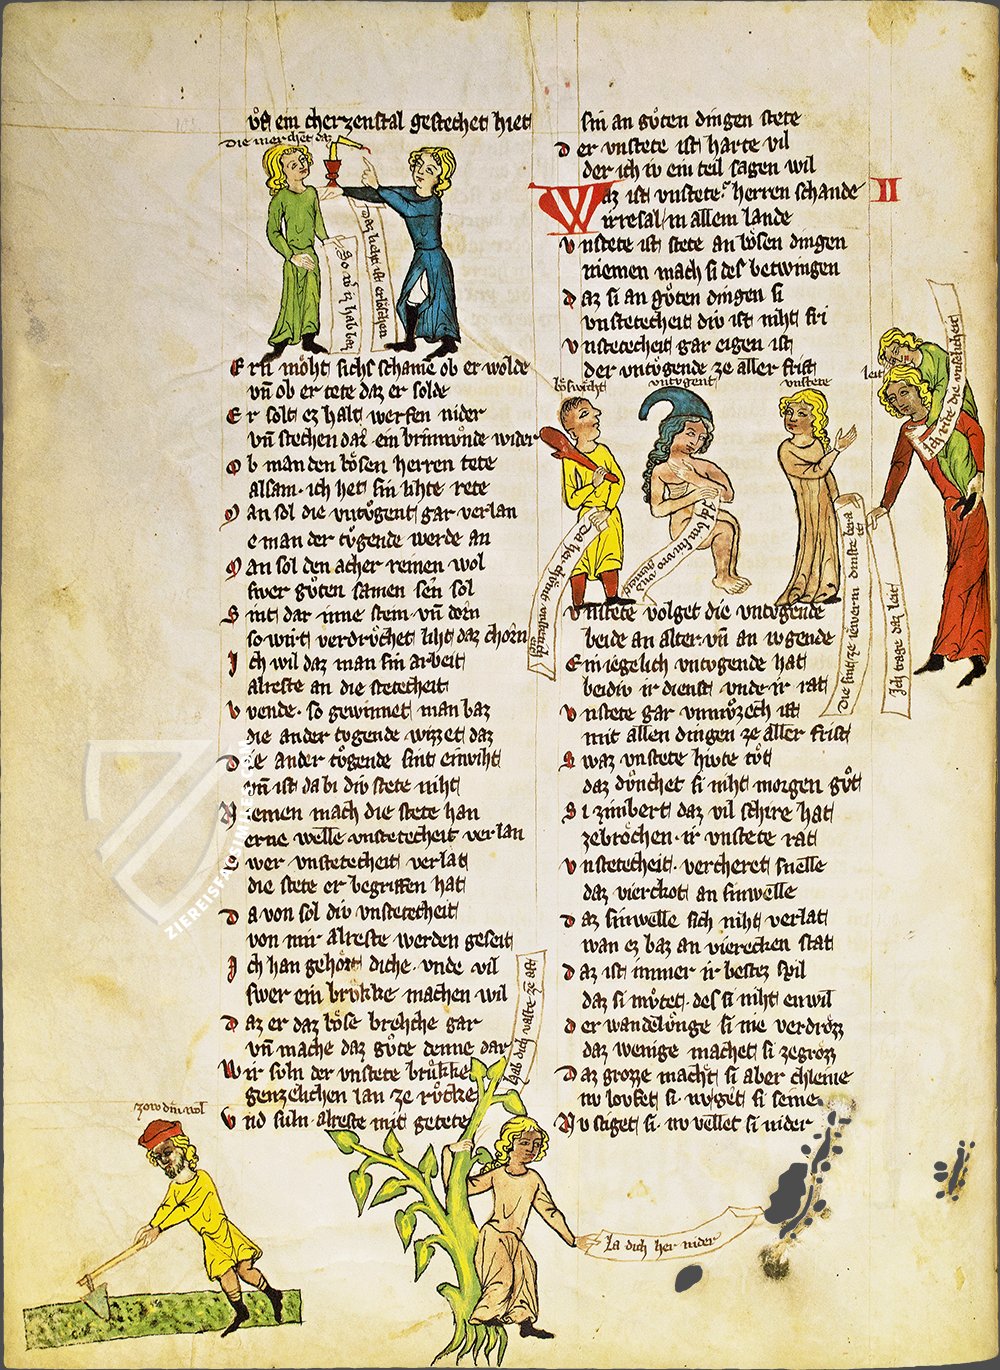 vn̄ ein cherzenstal gestechet hiet
Die merchent daz
So wirz hab baz
Daz lieht ist erloschen
Er si möht sichs schamē ob er wolde
vn̄ ob er tete daz er solde
Er solt ez halt werfen nider
vn̄ stechen dar ein brinnonde wider
Ob man den bösen herren tete
alsam. ich het sin lihte rete
Man sol die vntůgent gar verlan
e man der tůgende werde an
Man sol den acher reinen wol
swer gůten samen sen sol
Sint dar inne stein. vn̄ dorn
so wirt verdruchet liht daz chorn
Ich wil daz man sin arbeit
alreste an die stetecheit
Vvende. so gewinnet man baz
die ander togende wizzet daz
Die ander tůgende sint einwiht
vn̄ ist da bi div stete niht
Niemen mach die stete han
erne welle vnstetecheit verlan
Swer vnstetecheit verlat
die stete er begriffen hat
Da von sol div vnstetecheit
von mir alreste werden geseit
Ich han gehört diche. vnde vil
swer ein brukke machen wil
Daz er daz böse breche gar
vn̄ mache daz gůte denne dar
Wir suln der vnstete brukke
genzelichen lan ze rucke
Vnd suln. alreste mit getete
zow din wol
Hab dich vaste ze ast
La dich her nider
sin an gůten dingen stete
Der vnstete ist harte vil
der ich iv ein teil sagen wil
II
Waz ist vnstete. herren schande
irresal in allem lande
Vnstete ist stete an bösen dingen
niemen mach si des betwingen
Daz si an gůten dingen si
vnstetecheit div ist niht fri
Vnstetecheit gar eigen ist
der vntůgende ze aller frist
böswiht
vntůgent
vnstete
leit
Ich rite die vnselicheit
Ich trage daz leit
Vnstete volget die vntůgende
beide an alter. vn̄ an iůgende
Ein iegelich vntůgende hat
beidiv ir dienst vnde ir rat
Vnstete gar vnmůzech ist
mit allen dingen ze aller frist
Swaz vnstete hivte tůt
daz dunchet si niht morgen gůt
Si zimbert daz vil schire hat
zebrochen. ir vnstete rat
Vnstetecheit. vercheret snelle
daz vierekot an sinwelle
Daz sinwelle sich niht verlat
wan ez baz an vierecken stat
Daz ist immer ir bestez spil
daz si můtet. des si niht enwil
Der wandelunge si nie verdroz
daz wenige machet si zegroz
Daz grozze macht si aber chleine
nv loufet si. nv get si seine
Nv stiget si. nv vellet si nider
ZIEREIS FACSIMILES